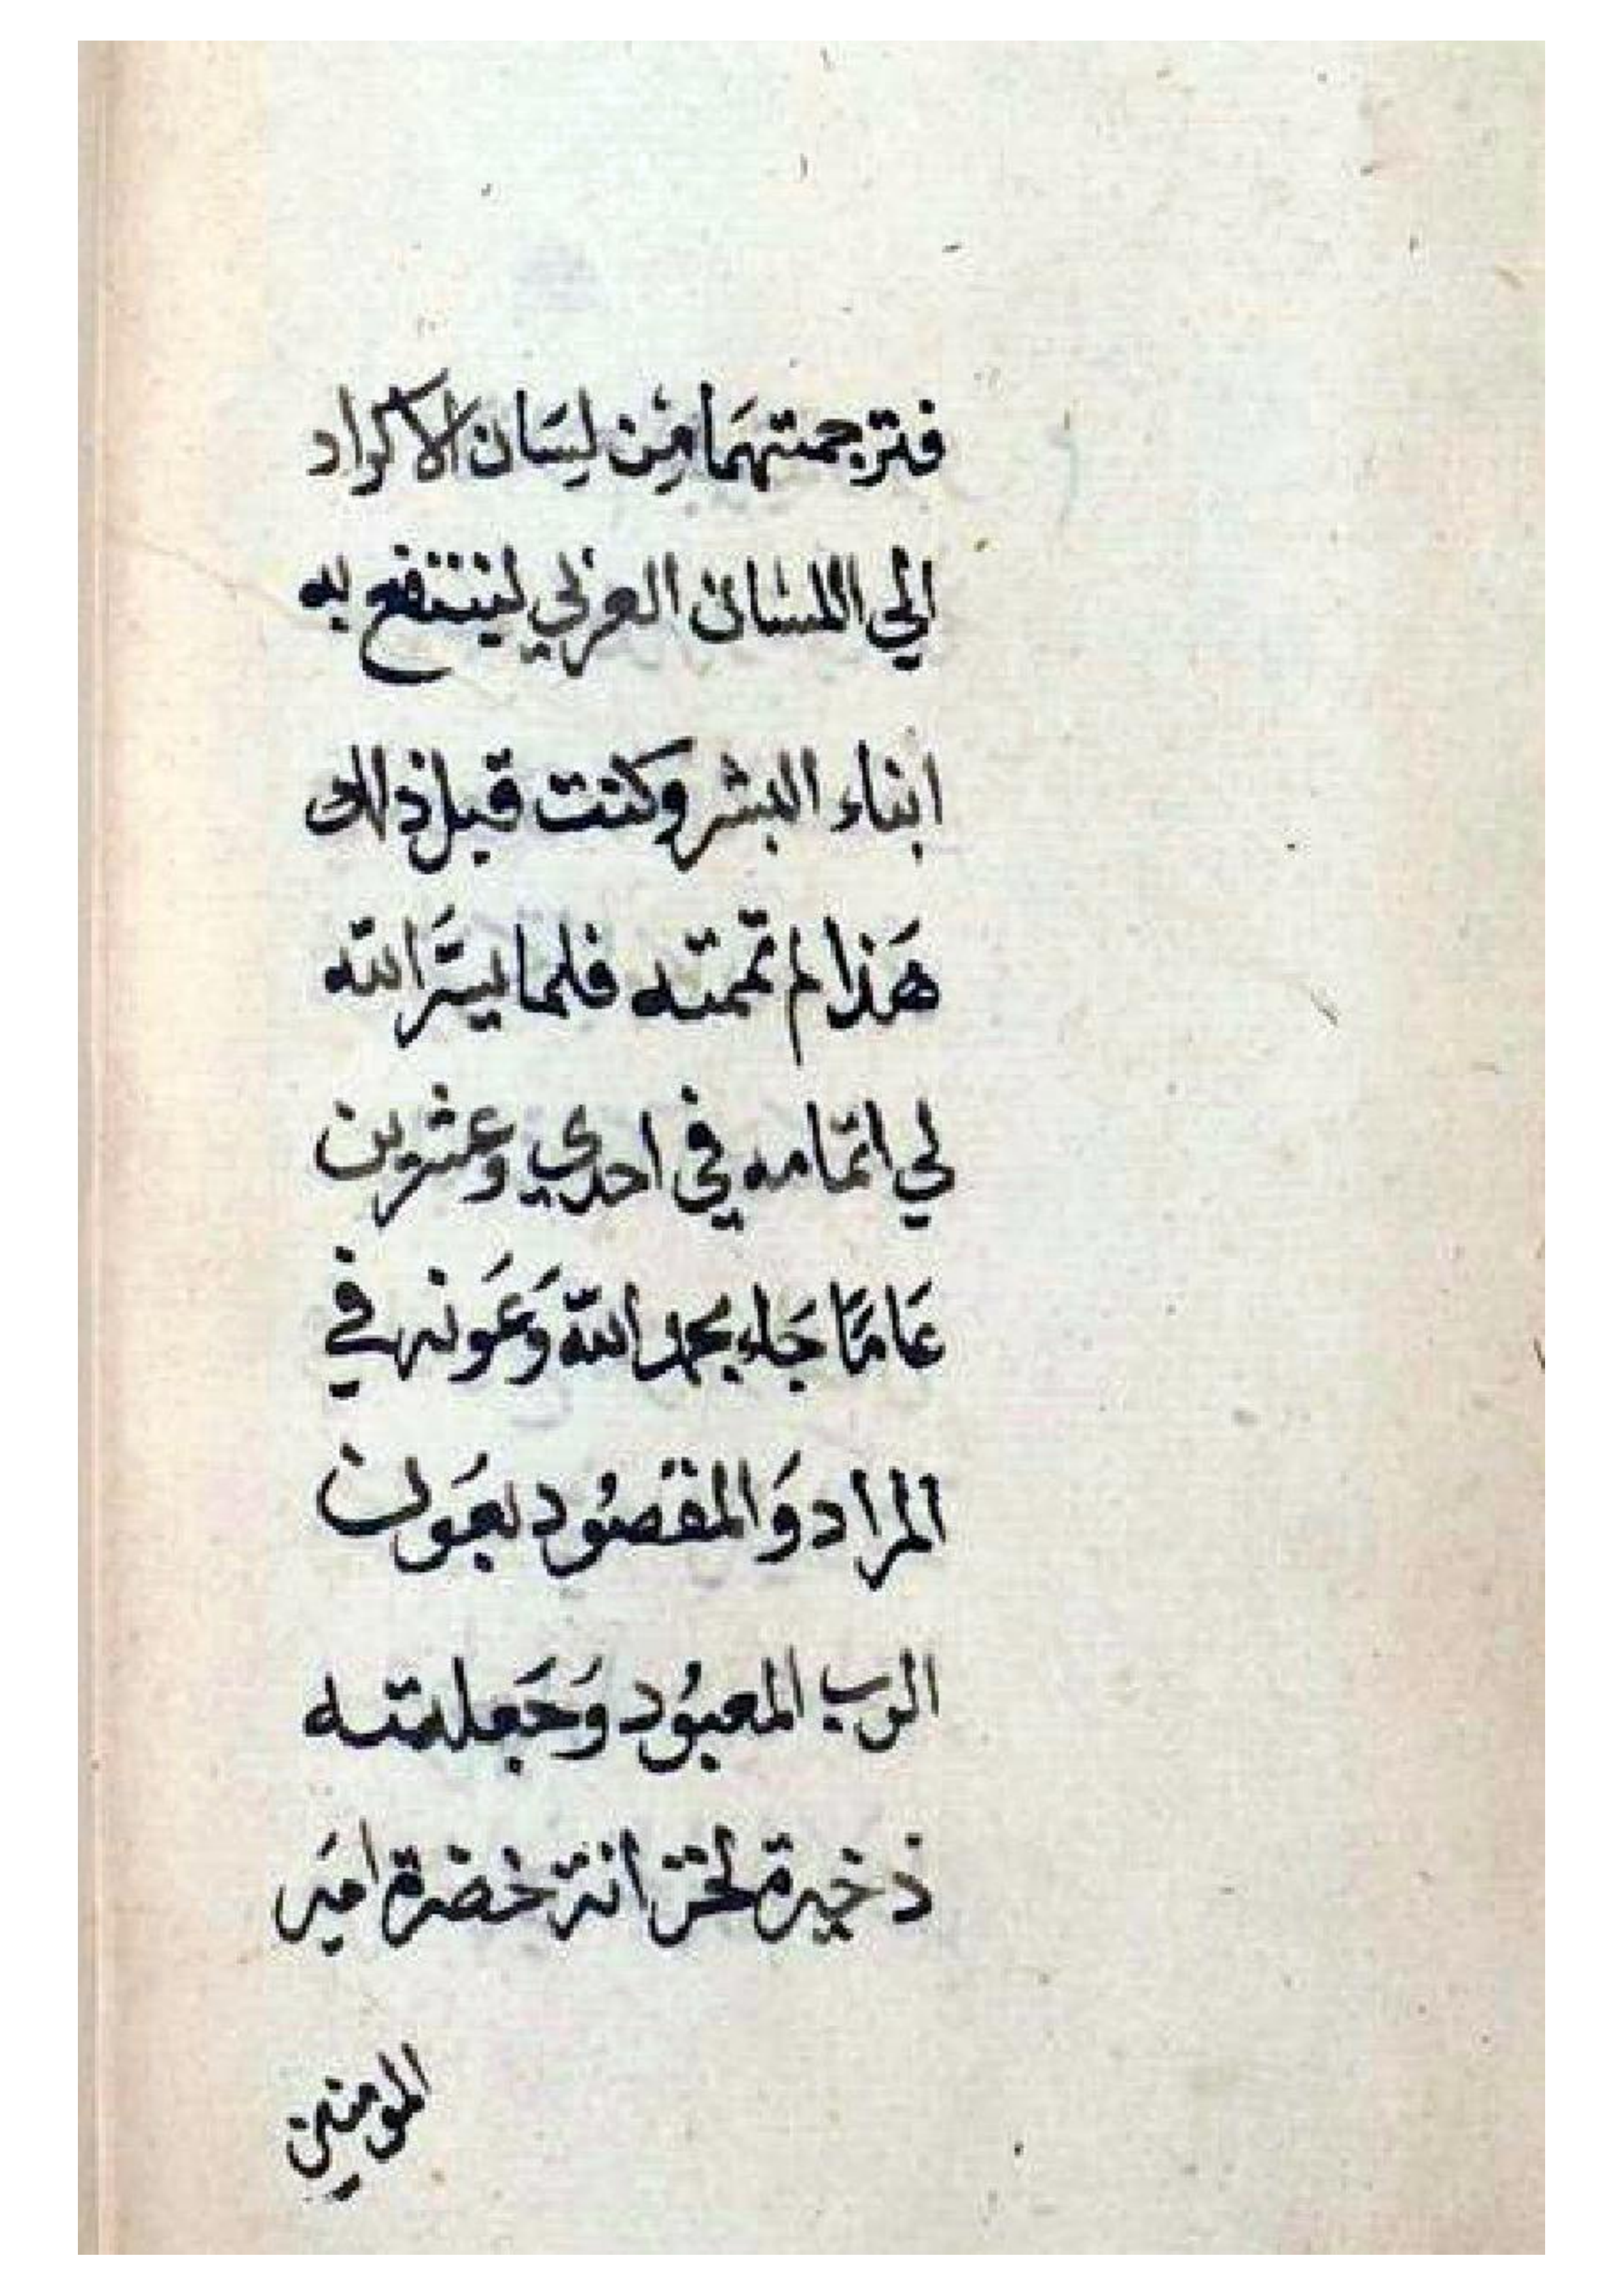 فترجمتهمَا مِن لِسَان الاكراد
الي اللسان العربي لينتفع به
ابناء البشر وكنت قبل ذلك
هَذا لم تممته فلما يسَّرَ الله
لي اتمامه في احدي وعشرين
عَامًا جَاء بحمد الله وَعَونه في
المراد وَالمقصُود بعَون
الرب المعبُود وَجَعلته
ذخيرة لخزانة حضرة امَير
المومنين